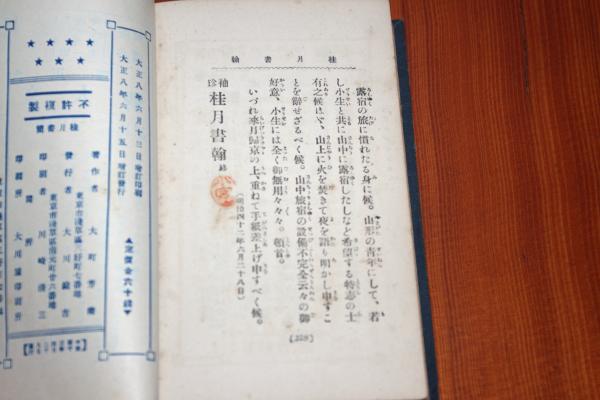 桂月書翰
露宿の旅に慣れたる身に候。山形の青年にして、若
し小生と共に山中に露宿したしなど希望する特志の士
有之候はゞ、山上に火を焚きて夜を語り明かし申すこ
とを辭せざるべく候。山中旅宿の設備不完全云々の御
好意、小生には全く御無用々々。頓首。
いづれ來月歸京の上、重ねて手紙差上げ申すべく候。
(明治四十二年六月二十八日)
袖珍 桂月書翰 終
【329】
大正八年六月十二日增訂印刷
大正八年六月十五日增訂發行
▲定價金六十錢▼
不許複製
桂月書翰
著作者 大町芳衞
東京市淺草區三好町七番地
發行者 大川錠吉
東京市淺草區南元町廿六番地
印刷者 川崎清三
印刷所 大川屋印刷所